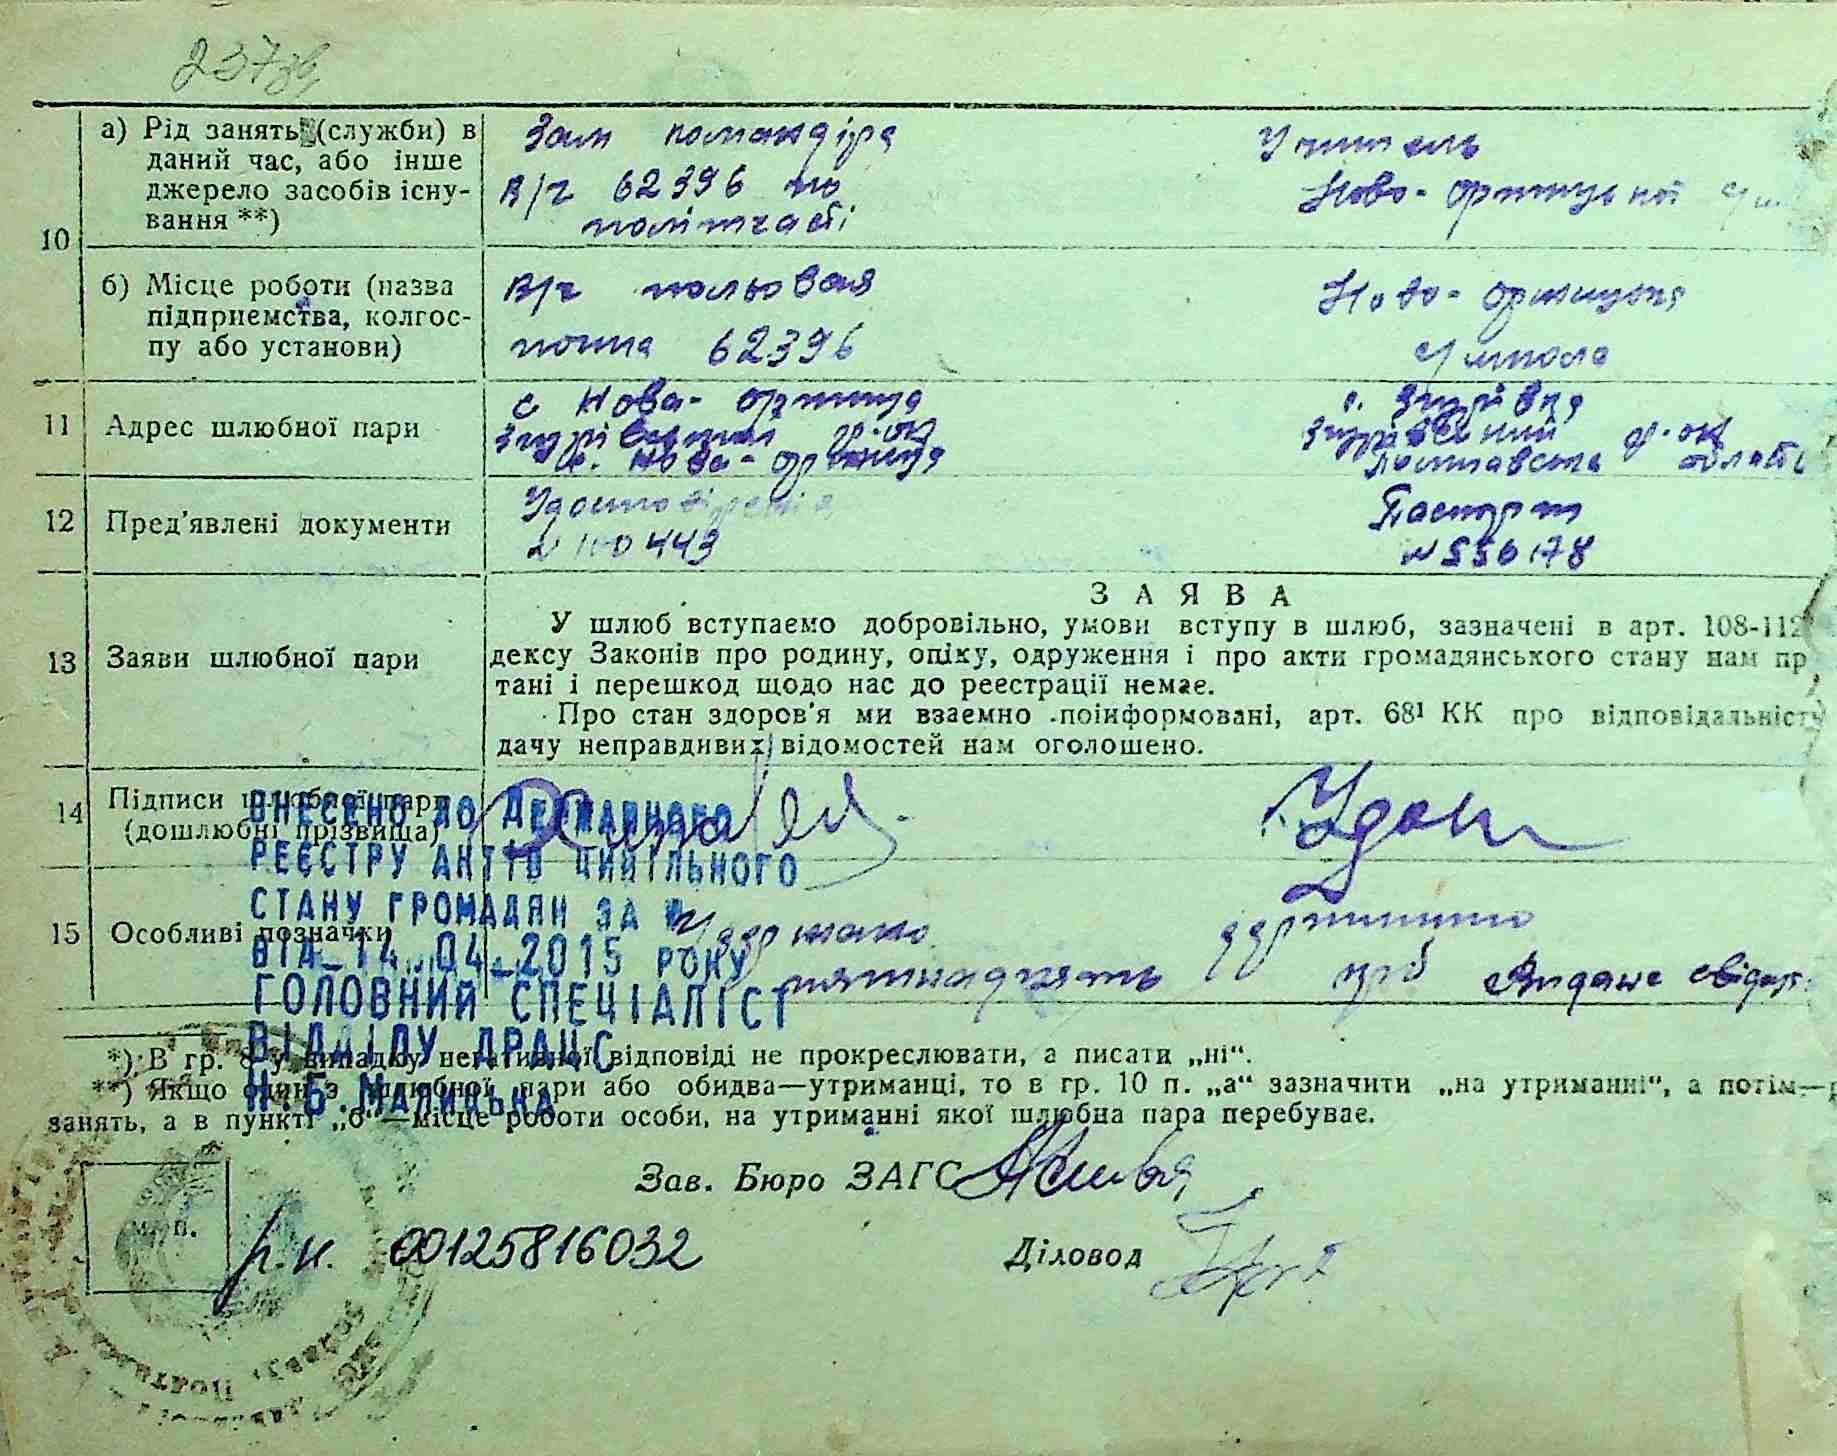 237
а) Рід занять (служби) в
даний час, або інше
джерело засобів існу-
вання **)
Зам командіра
В/ч 62396 по
політчасті
Учитель
Ново-оржицької
10
б) Місце роботи (назва
підприємства, колгос-
пу або установи)
В/ч польовая
почта 62396
Ново-оржицька
школа
11
Адрес шлюбної пари
с Нова-оржиця
Згурівський р-он
с. Нова-оржиця
с. Згурівка
Згурівський р-он
Полтавська область
12
Пред'явлені документи
Удостовіренія
443
Паспорт
N 556178
13
Заяви шлюбної пари
ЗАЯВА
У шлюб вступаємо добровільно, умови вступу в шлюб, зазначені в арт. 108-112
дексу Законів про родину, опіку, одруження і про акти громадянського стану нам
тані і перешкод щодо нас до реєстрації немає.
Про стан здоров'я ми взаємно поінформовані, арт. 68¹ КК про відповідальність
дачу неправдивих відомостей нам оголошено.
14
Підписи шлюбної пари
(дошлюбні прізвища)
15
Особливі позначки
Удержано
пятнадцять крб
Видане
ВНЕСЕНО ДО ДЕРЖАВНОГО
РЕЄСТРУ АКТІВ ЦИВІЛЬНОГО
СТАНУ ГРОМАДЯН ЗА №
ВІД 14.04.2015 РОКУ
ГОЛОВНИЙ СПЕЦІАЛІСТ
ВІДДІЛУ ДРАЦС
Н.Б.
*) В гр. 8 у випадку негативної відповіді не прокреслювати, а писати „ні“.
**) Якщо один з шлюбної пари або обидва—утриманці, то в гр. 10 п. „а“ зазначити „на утриманні“, а потім—
занять, а в пункті „б“—місце роботи особи, на утриманні якої шлюбна пара перебуває.
Зав. Бюро ЗАГС
М. П.
р.н. 00125816032
Діловод